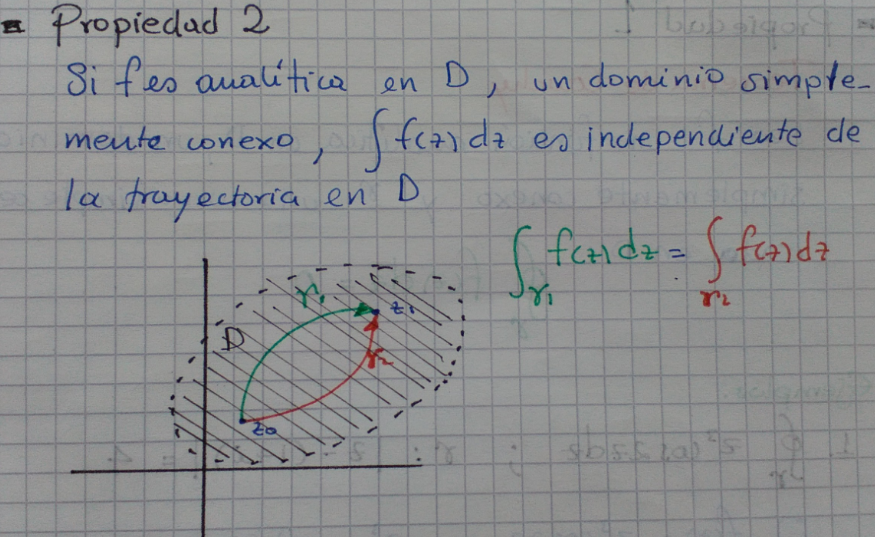 - Propiedad 2
Si f es analítica en D, un dominio simple-
mente conexo, ∫ f(z) dz es independiente de
la trayectoria en D
∫γ₁ f(z) dz = ∫γ₂ f(z) dz
γ₁
z₁
D
γ₂
z₀